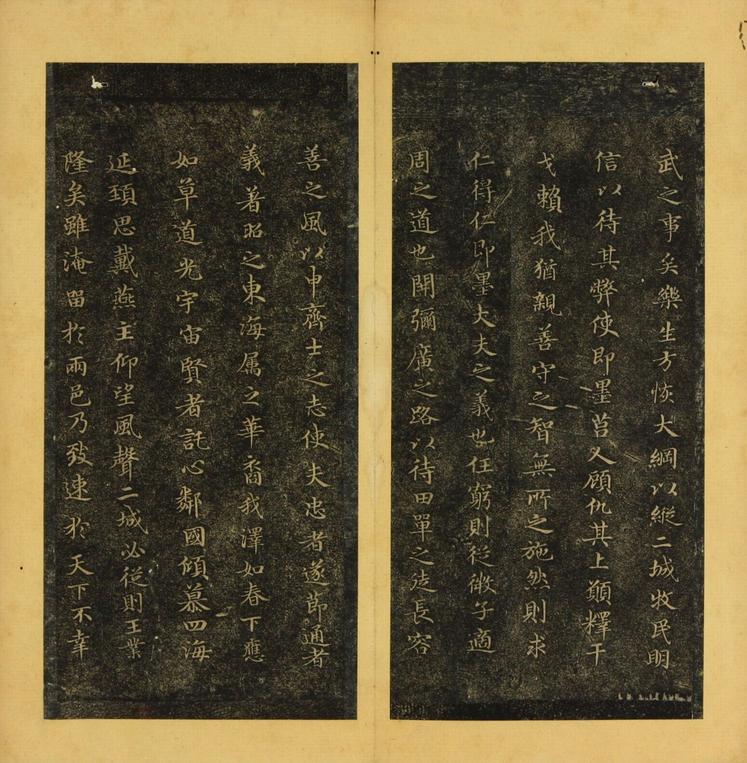 武之事矣樂生方恢大綱以縱二城牧民明
信以待其弊使即墨莒人顧仇其上願釋干
戈賴我猶親善守之智無所之施然則求
仁得仁即墨大夫之義也任窮則從微子適
周之道也開彌廣之路以待田單之徒長容
善之風以申齊士之志使夫忠者遂節通者
義著昭之東海属之華裔我澤如春下應
如草道光宇宙賢者託心鄰國傾慕四海
延頸思戴燕主仰望風聲二城必從則王業
隆矣雖淹留於兩邑乃致速於天下不幸